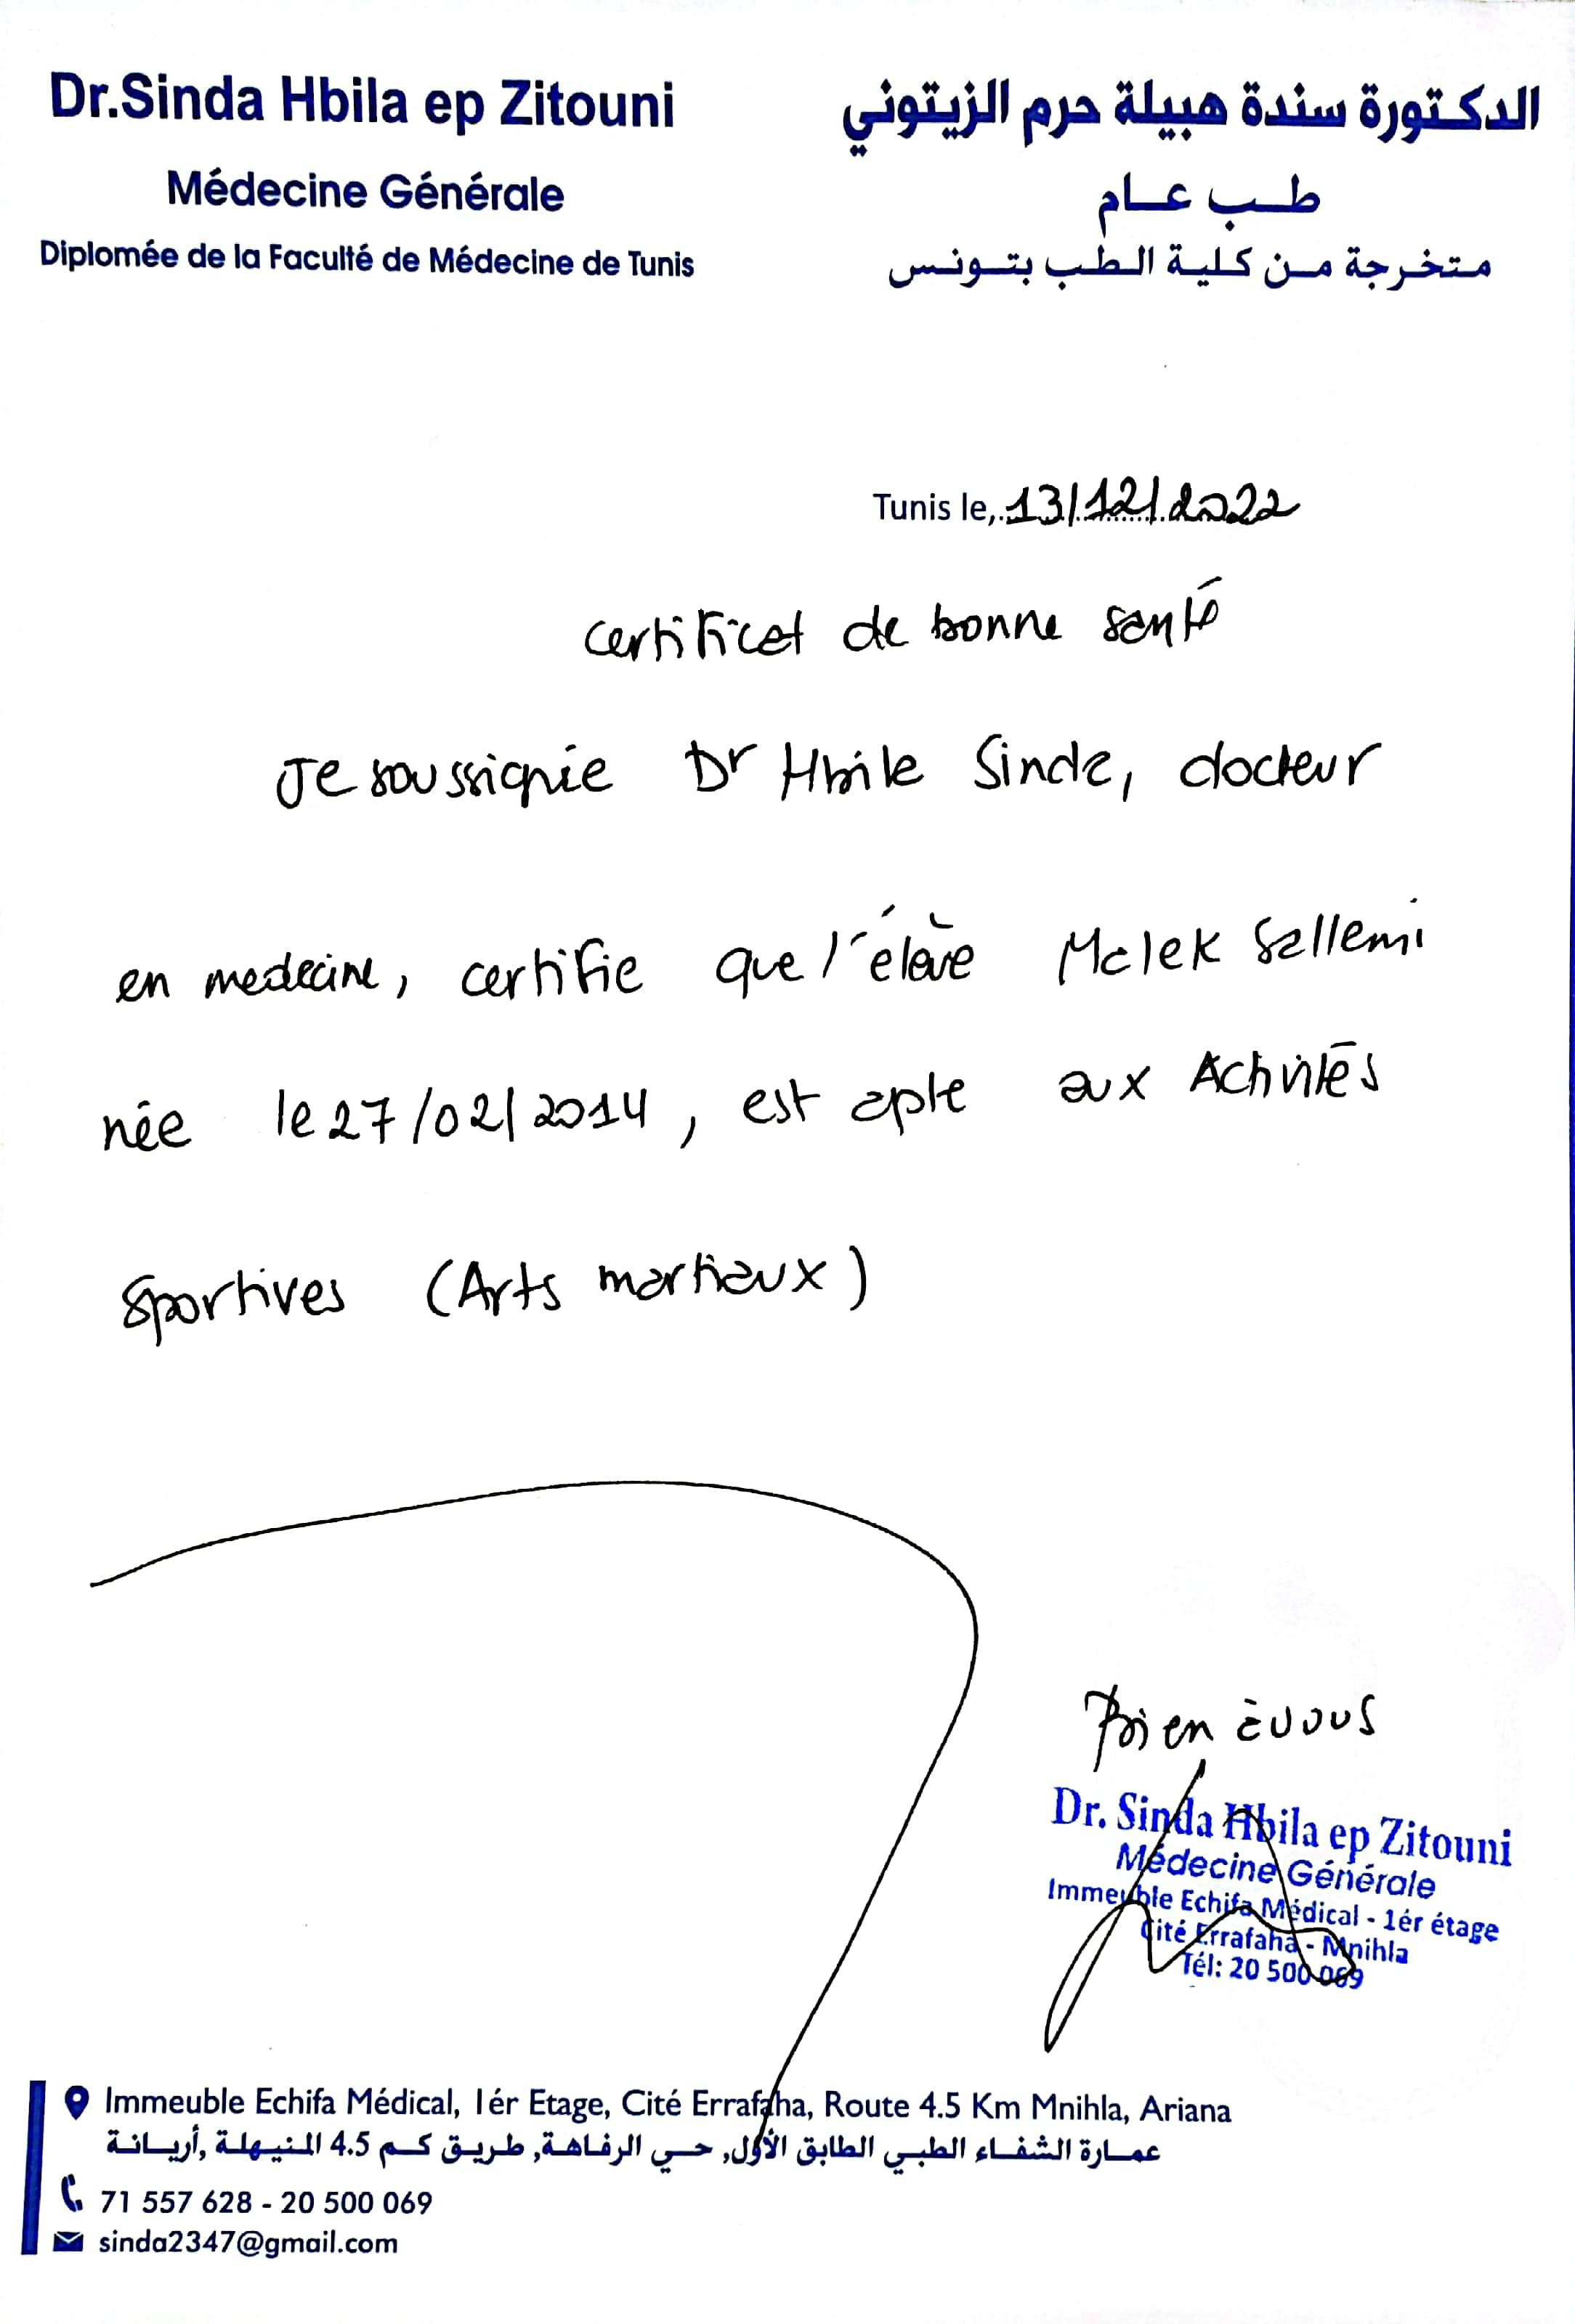 Dr.Sinda Hbila ep Zitouni
Médecine Générale
Diplomée de la Faculté de Médecine de Tunis
الدكتورة سندة هبيلة حرم الزيتوني
طب عام
متخرجة من كلية الطب بتونس
Tunis le, 13/12/2022
certificat de bonne santé
Je soussignée Dr Hbila Sinda, docteur
en medecine, certifie que l'élève Malek Sallemi
née le 27/02/2014, est apte aux Activités
sportives (Arts martiaux)
Bien à vous
Dr. Sinda Hbila ep Zitouni
Médecine Générale
Immeuble Echifa Médical - 1ér étage
Cité Errafaha - Mnihla
Tél: 20 500 069
Immeuble Echifa Médical, 1ér Etage, Cité Errafaha, Route 4.5 Km Mnihla, Ariana
عمارة الشفاء الطبي الطابق الأول, حي الرفاهة, طريق كم 4.5 المنيهلة ,أريانة
71 557 628 - 20 500 069
sinda2347@gmail.com